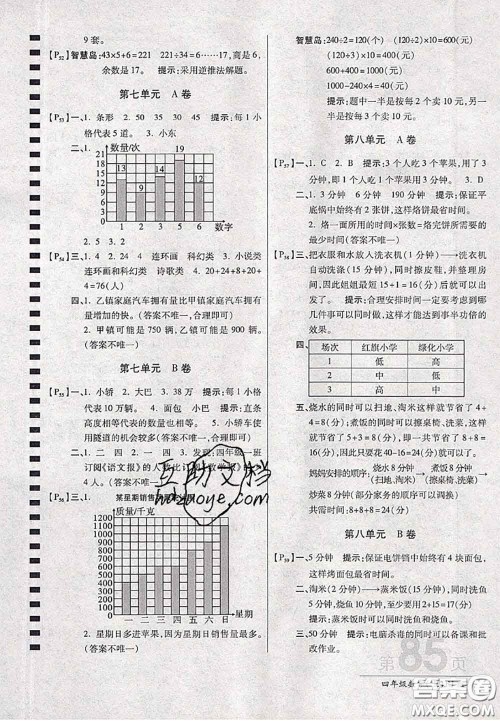 9 套。
[P52] 智慧岛：43×5+6=221　221÷34=6……17，商是 6，
余数是 17。　提示：采用逆推法解题。
第七单元　A 卷
[P53] 一、1. 条形　2. 50　35　30　45　提示：每 1 小
格代表 5 道。　3. 小东
二、1.
数量/次
21
18
15
12
9
6
3
0
13
9
14
19
11
1　2　3　4　5　6　数字
2. 5　3. 2
[P54] 三、1. 76　2. 24　4　连环画　科幻类　3. 小说类
连环画和科幻类　诗歌类　4. 20+24+8+20+4
=76(人)
四、1. 乙镇家庭汽车拥有量比甲镇家庭汽车拥有
量增加的快。(答案不唯一，合理即可)
2. 甲镇可能是 750 辆，乙镇可能是 900 辆。
(答案不唯一)
第七单元　B 卷
[P55] 一、1. 小轿　2. 大巴　3. 38 万　提示：每 1 小格
代表 10 万辆。　4. 面包　小巴　提示：直条
高度相等代表的数量也相等。　5. 小轿车使
用隧道的机会较多(答案不唯一)
二、1. 二　四　2. 一　四　3. 发现：四年级一班
订阅《语文报》的人
4 人。(答案不唯一)
[P56] 三、1.
某星期销售
质量/千克
1000
900
800
700
600
500
400
300
200
100
0
一　二　三　四　五　六　日　星期
2. 星期日多进苹果，因为星期日销售量最多。
(答案不唯一，合理即可)
智慧岛：240÷2=120(个)　(120÷2)×10=600(元)
(120÷3)×10=400(元)
600+400=1000(元)
1000-240×4=40(元)
提示：一半是按每 2 个卖 10 元，另一
半是按每 3 个卖 10 元。
第八单元　A 卷
一、1. C　2. B　提示：3 个人吃 3 个苹果，用了 3
分钟，即 1 个人吃 1 个苹果用 3 分钟。　3. D
二、1. 3 分钟　6 分钟　190 分钟　提示：保证平
底锅中始终有 2 张饼，这样烙饼最省时间。
2. 烙一面所用的时间×张数=烙完饼所需要
的最少时间(答案不唯一)
三、把衣服和水放入洗衣机(1 分钟)⟶洗衣机
自动洗涤(15 分钟)，同时擦皮鞋，并整理房
间，因此最短 15+1=16(分钟)后就可以出
去玩了　提示：合理安排时间一定要考虑到哪
几件事可以同时做，这样可以节省时间。
四、
场次　红旗小学　绿化小学
1　低　高
2　高　中
3　中　低
五、烧水的同时可以扫地、淘米这样就节省了 4+
4=8(分钟)；煮饭的同时可以擦桌椅、洗菜，节省
了 16 分钟；炒菜的同时可以煮汤，节省了 8 分
钟，一共可以节省时间：8+16+8=32(分钟)，
40<16+32，所以在 40 分钟内能做完。
妈妈安排的顺序：烧水8分钟(扫地、淘米)⟶煮饭16分钟(擦桌椅、洗菜)
⟶炒菜8分钟(煮汤)(部分家务的顺序可以调换)　共需时间：
8+8+16=32(分钟)
第八单元　B 卷
一、5 分钟　提示：保证电饼铛中始终有 4 块面包，
这样烤面包最省时间。
二、淘米(2 分钟)⟶蒸米饭(15 分钟)(同时洗鱼
5 分钟、烧鱼 10 分钟)　2+15=17(分钟)
提示：蒸米饭的同时可以洗鱼和烧鱼。
三、50 分钟　提示：电脑杀毒的同时可以备课和批
改作业。
互助文档
hdzuoye.com
第 85 页
四年级数
答案圈
MXQE.COM